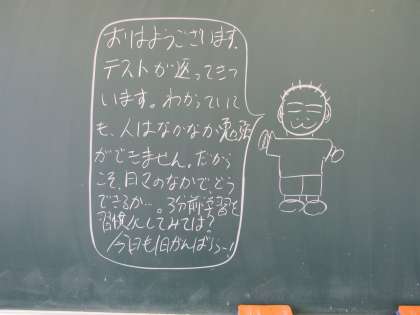 おはようございます。
テストが返ってきて
います。わかっていて
も、人はなかなか勉強
ができません。だから
こそ、日々のなかで、どう
できるか…。3分前学習を
習慣化してみては？
今日も1日がんばろう！